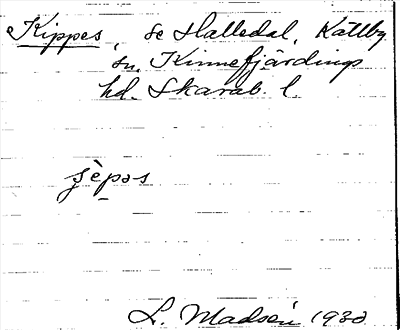 Kippes, se Halledal, Källby
sn, Kinnefjärdings
hd. Skarab. l.
L. Madsén 1930